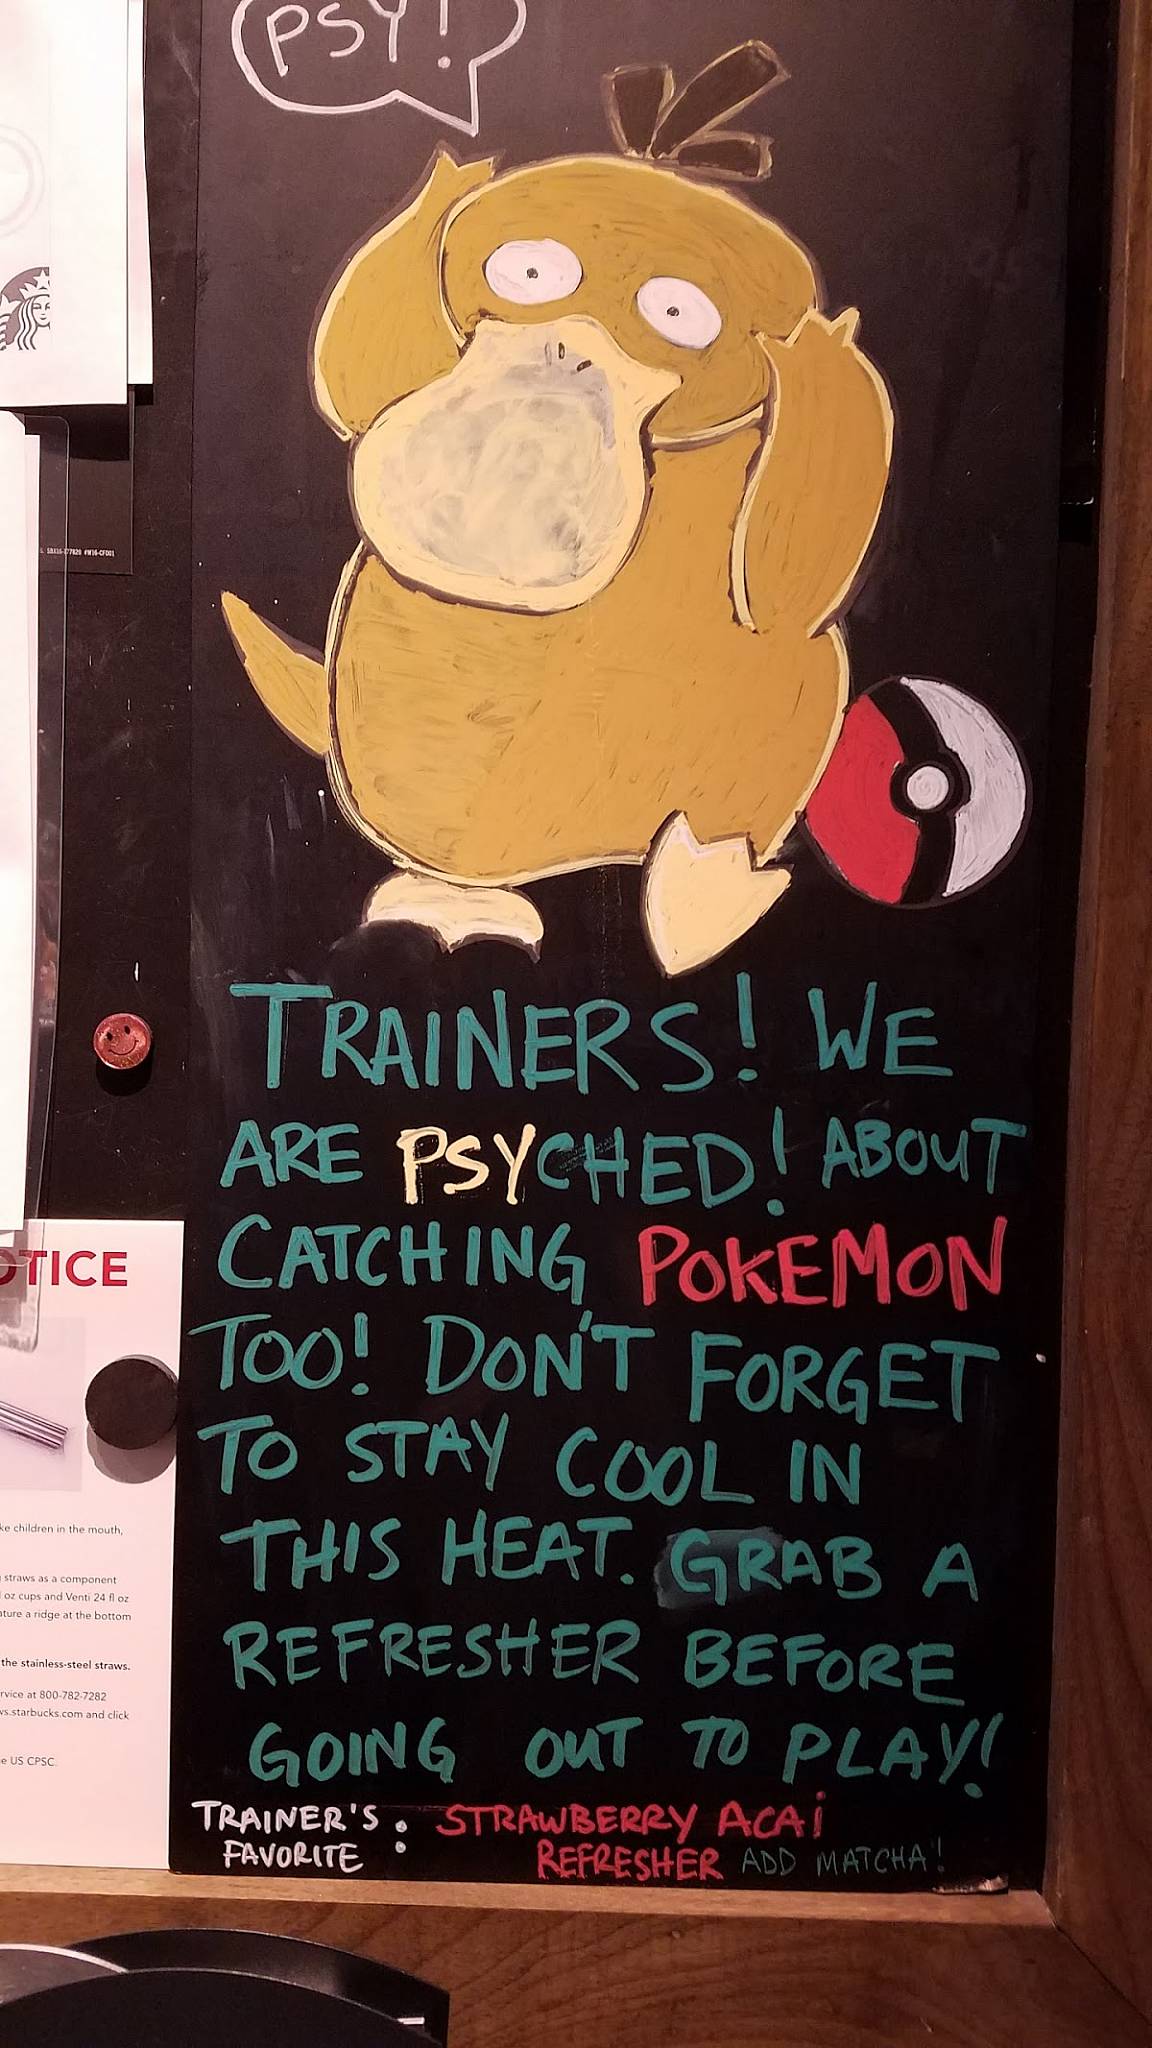 PSY!
TRAINERS! WE
ARE PSYCHED! ABOUT
CATCHING POKEMON
TOO! DON'T FORGET
TO STAY COOL IN
THIS HEAT. GRAB A
REFRESHER BEFORE
GOING OUT TO PLAY!
TRAINER'S : STRAWBERRY ACAi
FAVORITE REFRESHER ADD MATCHA!
#W16-CF001
OTICE
ke children in the mouth,
straws as a component
oz cups and Venti 24 fl oz
ature a ridge at the bottom
the stainless-steel straws.
rvice at 800-782-7282
ws.starbucks.com and click
e US CPSC.